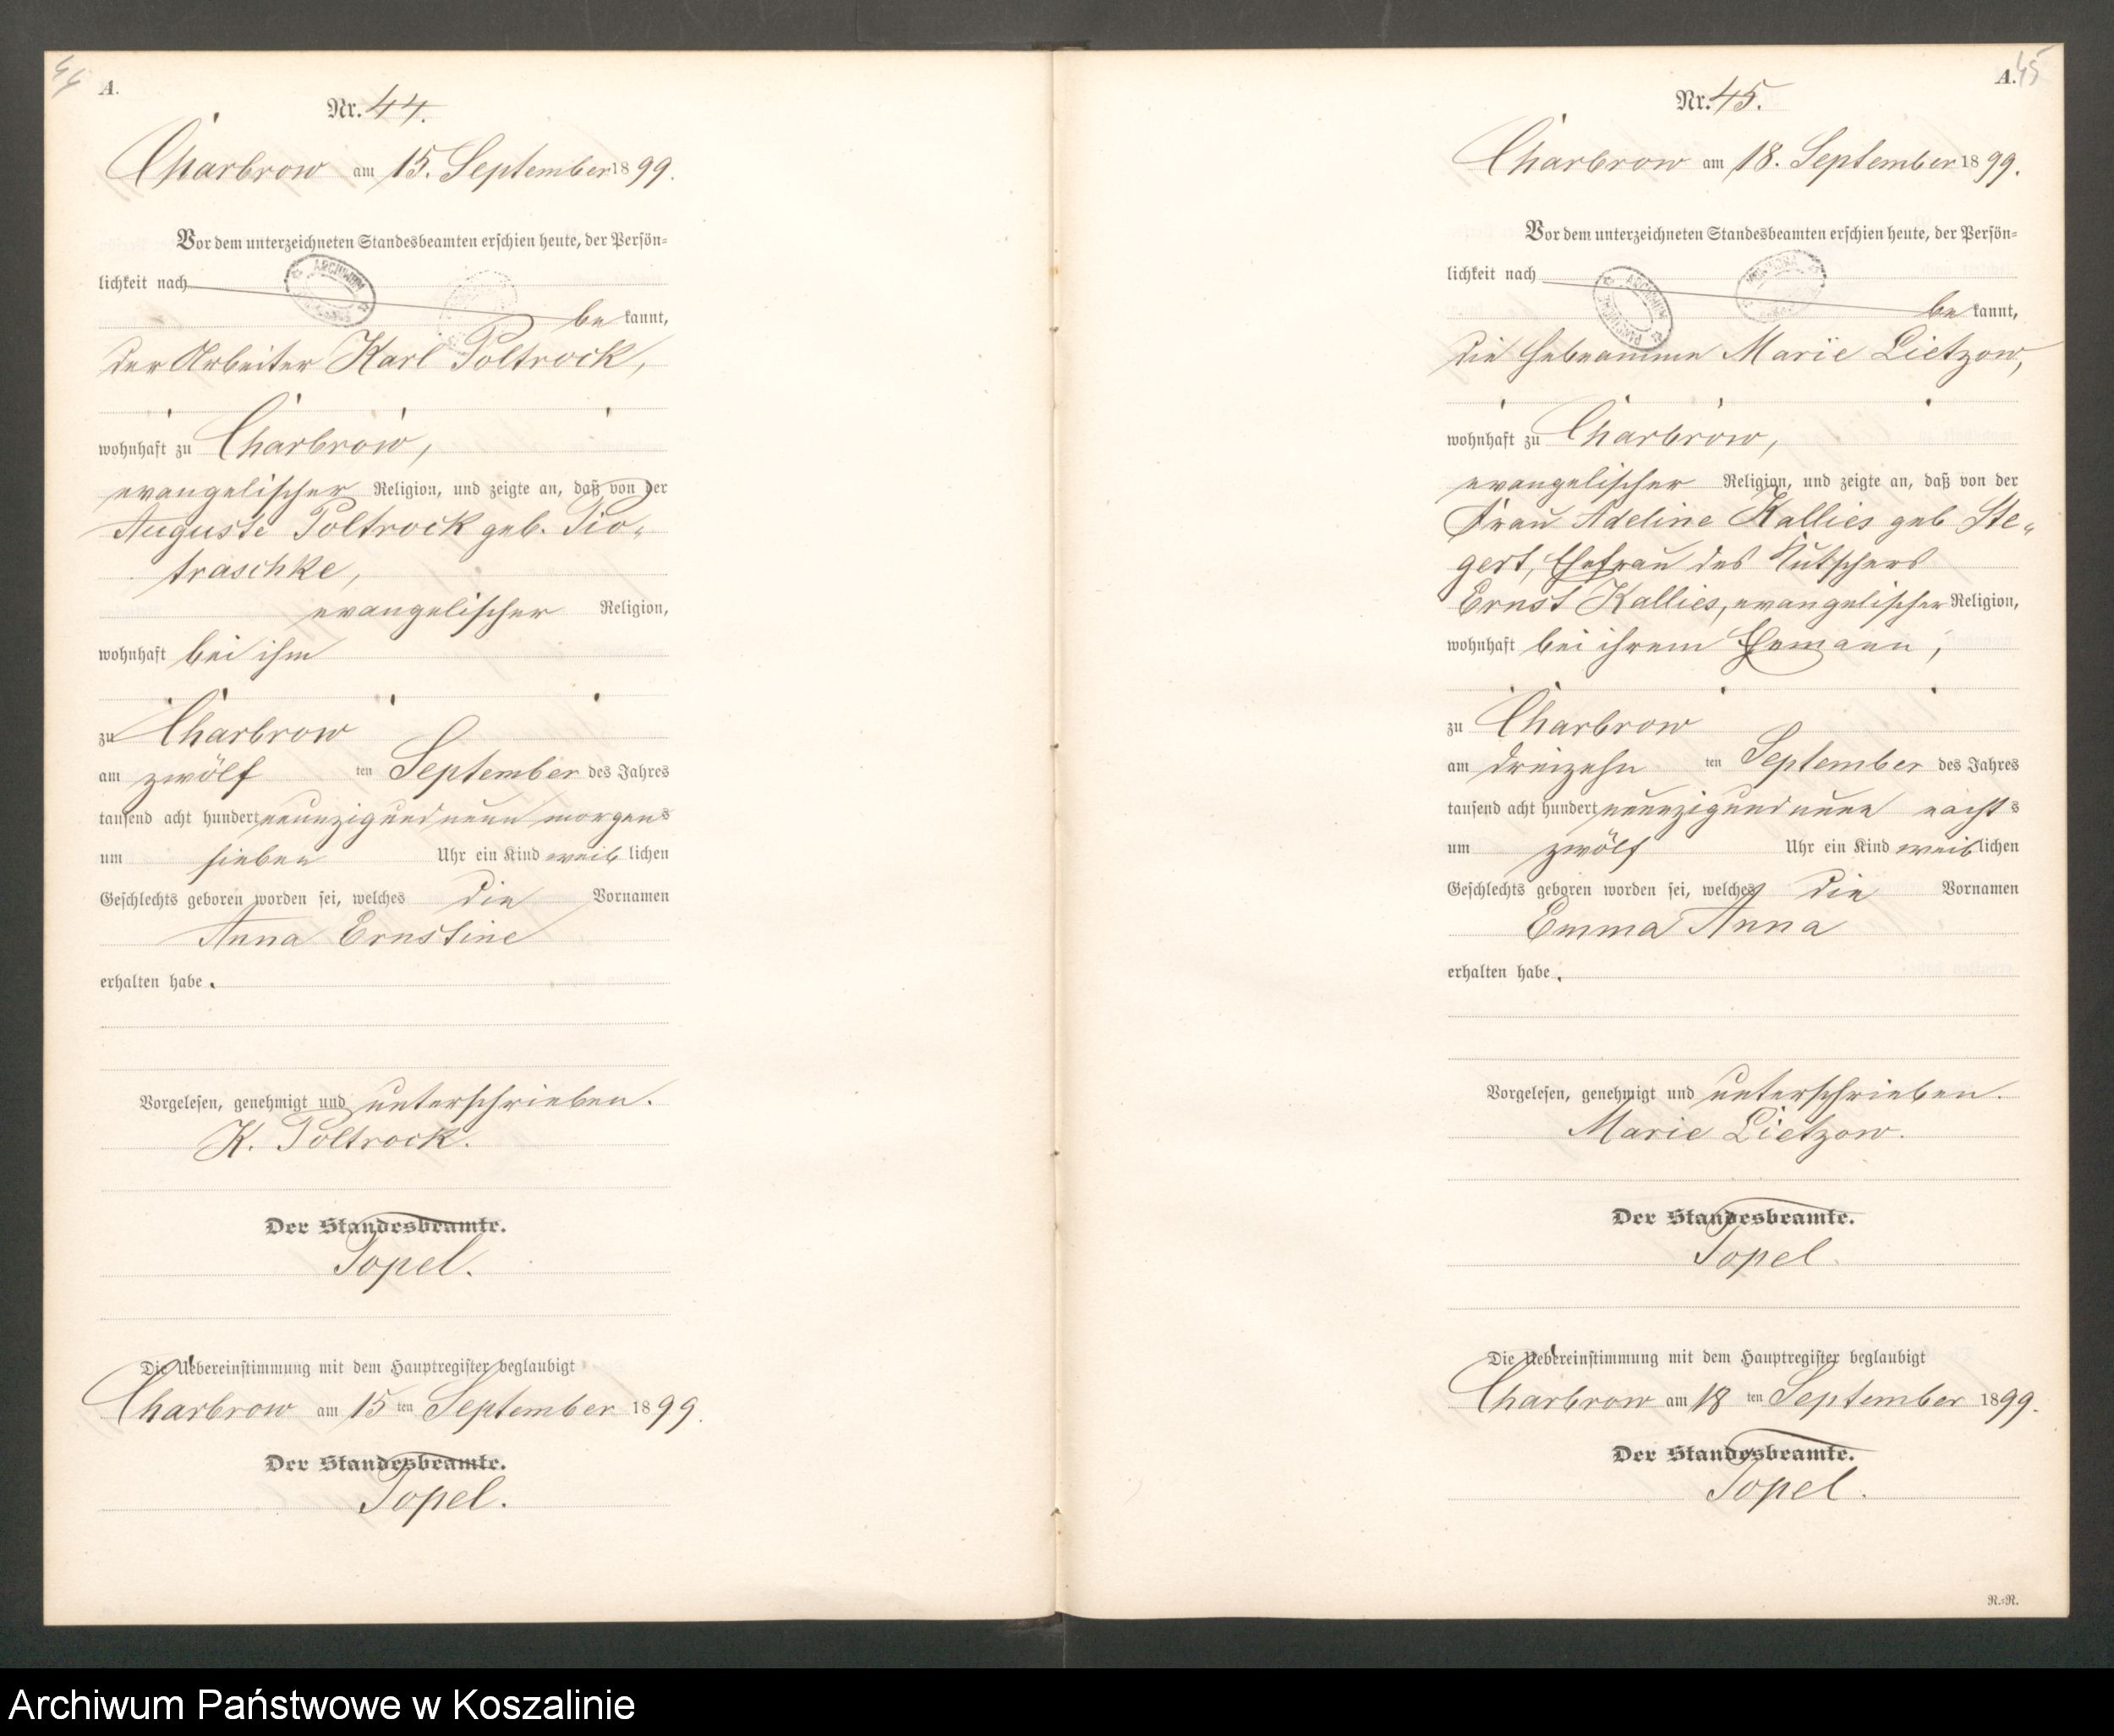 44
A.
Nr. 44.
Charbrow am 15. September 1899.
Vor dem unterzeichneten Standesbeamten erschien heute, der Persön=
lichkeit nach
be kannt,
der Arbeiter Karl Poltrock,
wohnhaft zu Charbrow,
evangelischer Religion, und zeigte an, daß von der
Auguste Poltrock geb. Pio-
traschke,
evangelischer Religion,
wohnhaft bei ihm
zu Charbrow
am zwölf ten September des Jahres
tausend acht hundert neunzigundneun morgens
um sieben Uhr ein Kind weib lichen
Geschlechts geboren worden sei, welches die Vornamen
Anna Ernstine
erhalten habe.
Vorgelesen, genehmigt und unterschrieben.
K. Poltrock.
Der Standesbeamte.
Topel.
Die Uebereinstimmung mit dem Hauptregister beglaubigt
Charbrow am 15 ten September 1899.
Der Standesbeamte.
Topel.
A. 45
Nr. 45.
Charbrow am 18. September 1899.
Vor dem unterzeichneten Standesbeamten erschien heute, der Persön=
lichkeit nach
be kannt,
die Hebeamme Marie Lietzow,
wohnhaft zu Charbrow,
evangelischer Religion, und zeigte an, daß von der
Frau Adeline Kallies geb Ste-
gert, Ehefrau des Kutschers
Ernst Kallies, evangelischer Religion,
wohnhaft bei ihrem Ehemann,
zu Charbrow
am dreizehn ten September des Jahres
tausend acht hundert neunzigundneun nachts
um zwölf Uhr ein Kind weiblichen
Geschlechts geboren worden sei, welches die Vornamen
Emma Anna
erhalten habe.
Vorgelesen, genehmigt und unterschrieben.
Marie Lietzow.
Der Standesbeamte.
Topel.
Die Uebereinstimmung mit dem Hauptregister beglaubigt
Charbrow am 18 ten September 1899.
Der Standesbeamte.
Topel.
R.=R.
Archiwum Państwowe w Koszalinie